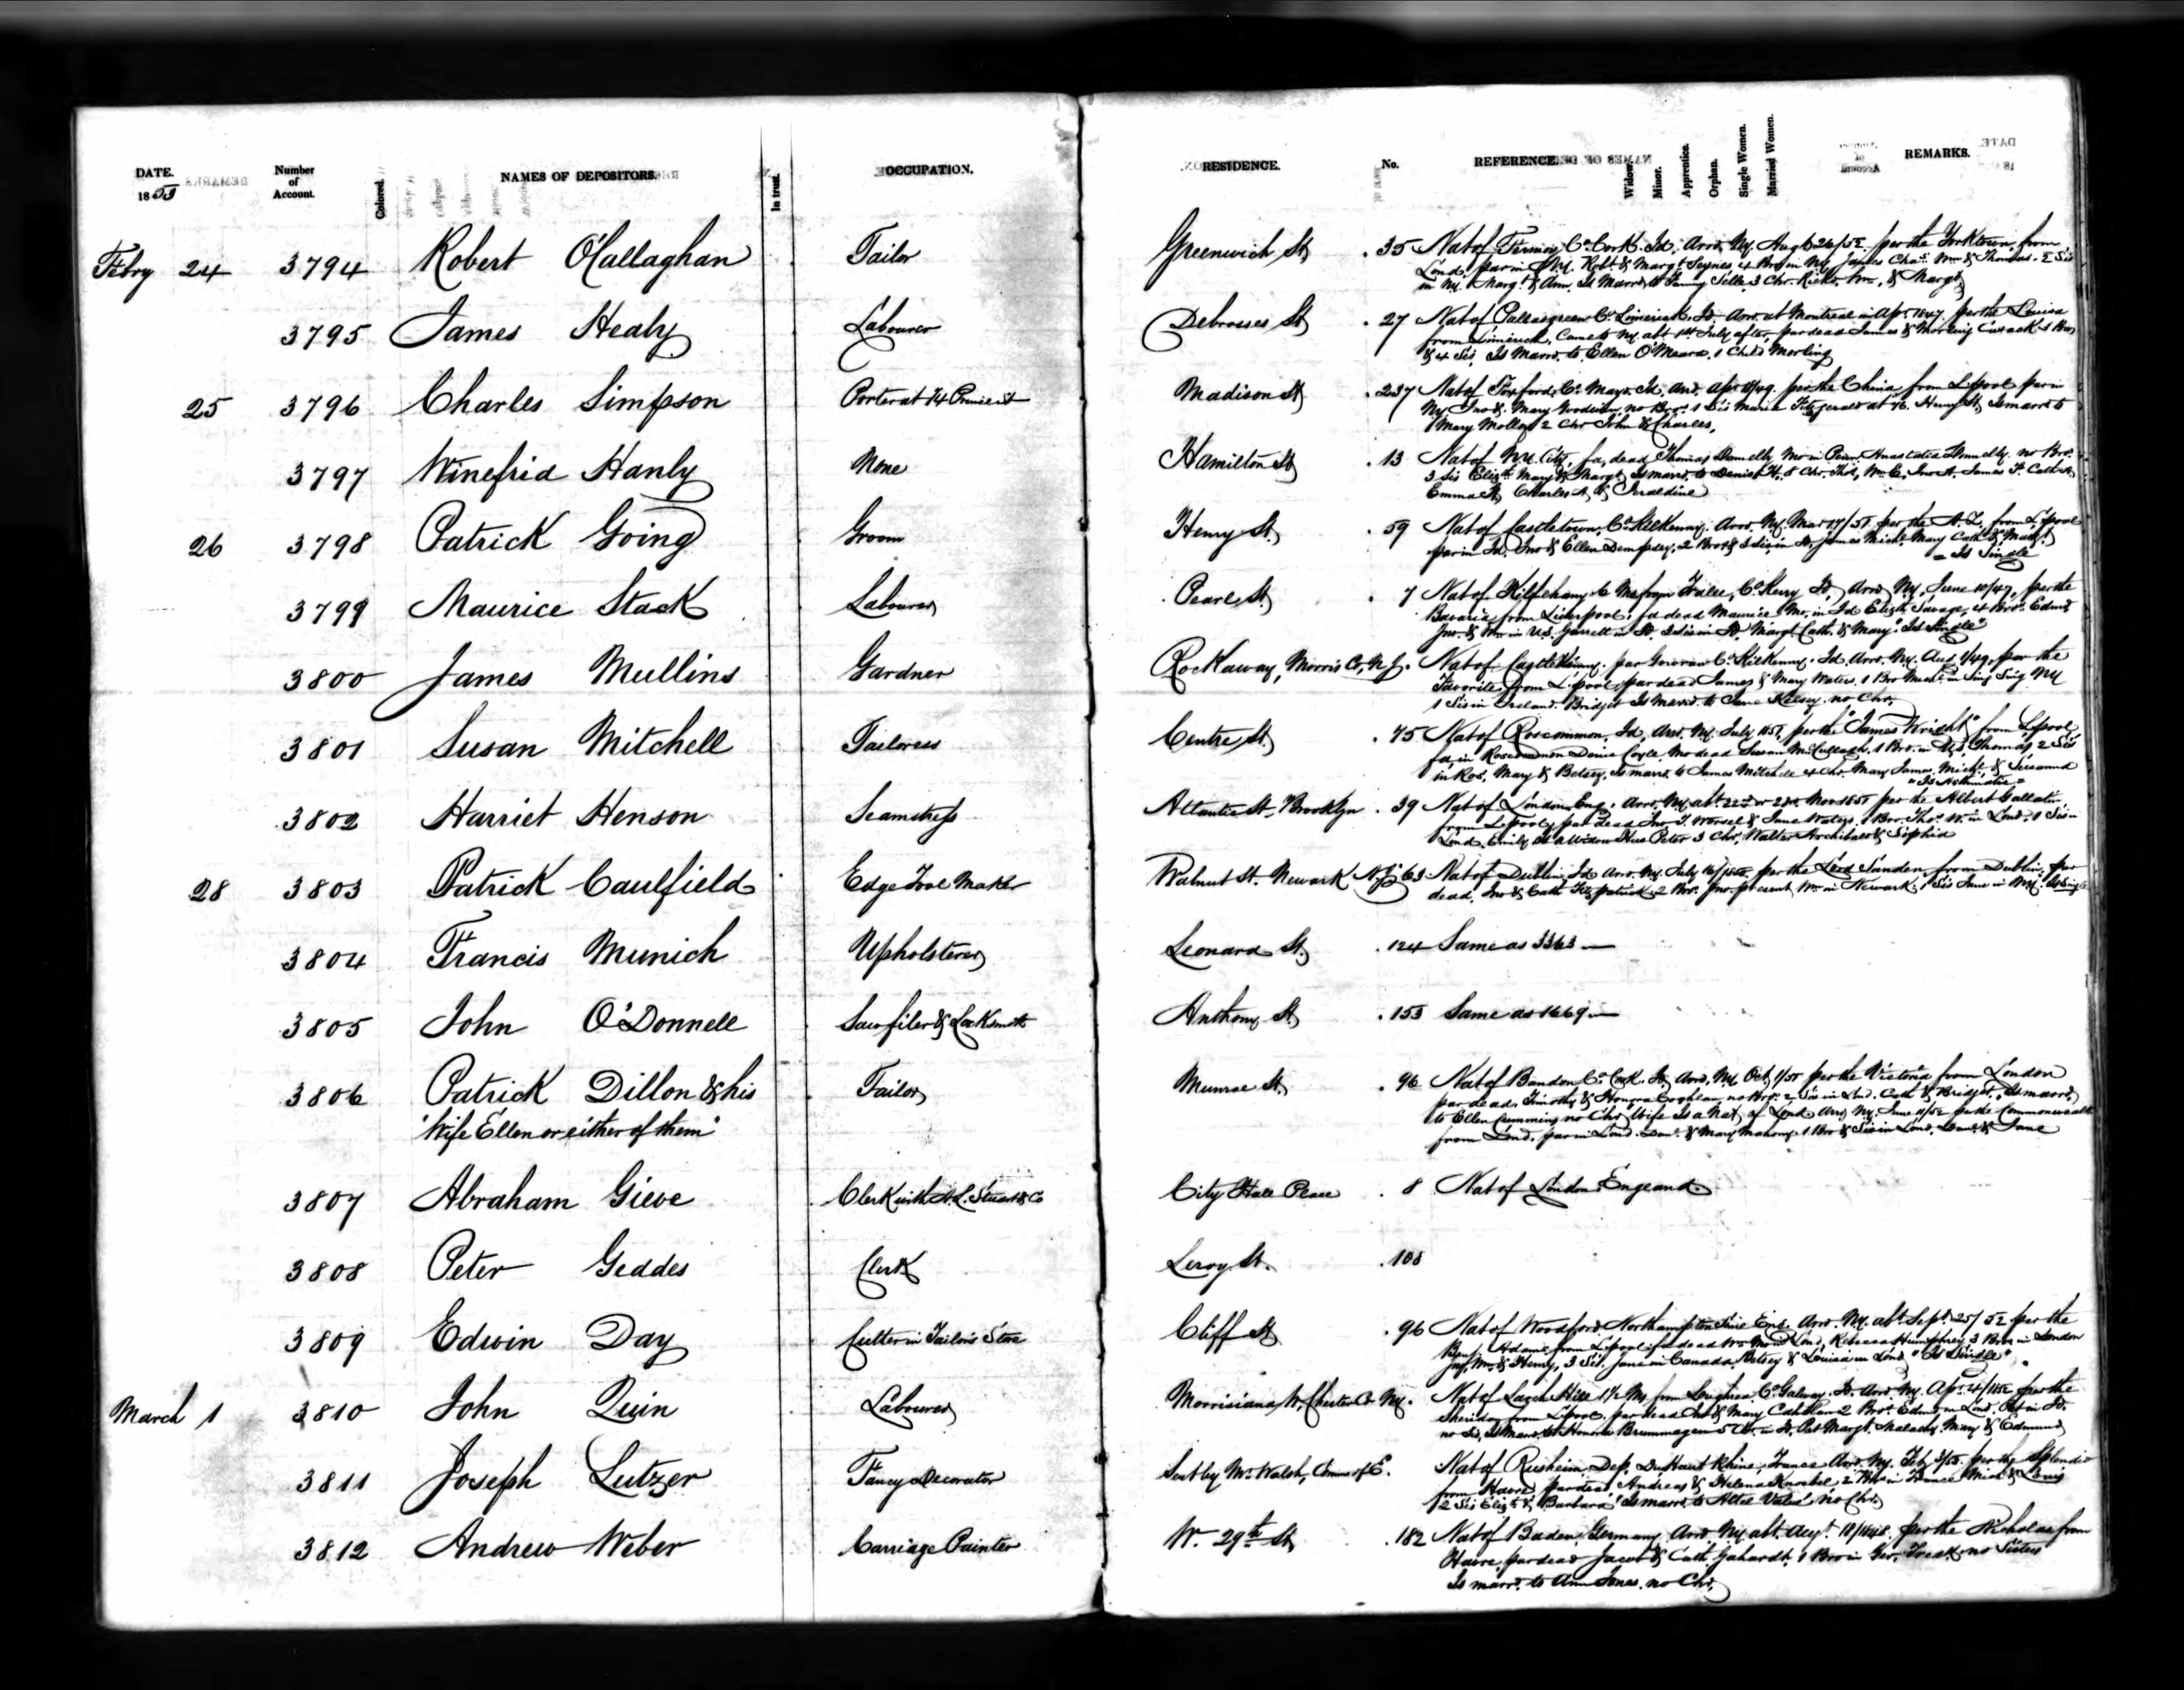 DATE. Number of Account. Colored. NAMES OF DEPOSITORS. In trust. OCCUPATION. RESIDENCE. No. REFERENCE. Widow. Minor. Apprentice. Orphan. Single Women. Married Women. REMARKS.
1853
Febry 24 3794 Robert O'Callaghan Tailor Greenwich St. 35 Nat of Fermoy Co. Cork. Id. Arrd. NY. Augt 26/52 per the Yorktown from
Lond. par in NY. Robt & Margt 4 Bros in NY. James Chas. Wm & Thomas. 2 Sis
in NY. Margt & Ann. Is Marrd to Fanny 3 Chr. Richd. Wm. & Margt
3795 James Healy Labourer Debrosses St 27 Nat of Pallasgreen Co Limerick. Id. Arrd. at Montreal in Apr 1847 per the Louisa
from Limerick. Came to NY. abt 1st July after, par dead James & Cusack 3 Bros
& 4 Sis. Is Marrd. to Ellen O'Meara. 1 Child
25 3796 Charles Simpson Porter at 74 St Madison St 237 Nat of Foxford, Co. Mayo. Id. Arrd. Apr per the China from Lpool par in
NY Jno & Mary Goodwin, no Bro. 1 Sis Maria Fitzgerald at 76. Henry St. Is marrd to
Mary Molloy 2 Chr John & Charles.
3797 Winefrid Hanly None Hamilton St 13 Nat of NY. City. fa. dead Thomas Donnelly Mo in Donnelly. no Bro.
3 Sis Elizth. Mary & Margt Is marrd. to Daniel H. 8 Chr. Wm E. Jno A. James F. Cath A.
Emma Charles A. & Geraldine
26 3798 Patrick Going Groom Henry St. 59 Nat of Castletown, Co. Kilkenny. Arrd. NY. Mar 17/51 per the A. Z. from Lpool
par in Id. Jno & Ellen Dempsey. 2 Bros & 3 Sis in Id. James Michl. Mary Cath & Margt.
= Is Single
3799 Maurice Stack Labourer Pearl St. 7 Nat of 6 Ms from Tralee, Co. Kerry Id. Arrd NY. June 10/47, per the
Bavaria from Liverpool. fa dead Maurice Mo. in Id Elizth. Savage, 4 Bros. Edmd
Jno. & Wm in U.S. Garrett in Id 3 Sis in Id Margt. Cath. & Mary. "Is Single"
3800 James Mullins Gardner Rockaway, Morris Co, N.J. Nat of par Gowran Co. Kilkenny. Id. Arrd. NY. Aug 1/49, per the
Favorite from Lpool par dead James & Mary Waters. 1 Bro Michl. in Sing Sing NY
1 Sis in Ireland. Bridget Is Marrd. to Jane Kelsey. no Chr.
3801 Susan Mitchell Tailoress Centre St. 45 Nat of Roscommon. Id. Arrd. NY. July 1851, per the "James Wright" from Lpool,
fa. in Roscommon Denis Coyle. Mo dead Susan McCullagh. 1 Bro. in U.S. Thomas 2 Sis
in Ros. Mary & Betsey, Is marrd. to James Mitchell 4 Chr. Mary James. Michl. & Susanna
"Is Asthmatic"
3802 Harriet Henson Seamstress Atlantic St. Brooklyn. 39 Nat of London Eng. Arrd. NY. abt. 22nd or 23rd. Nov 1851 per the Albert Gallatin
from Lpool, par dead Jno T. & Jane Waters, 1 Bro. Thos. W. in Lond. 1 Sis in
Lond. Emily Is a Widow Hus Peter 3 Chr. Walter Archibald & Sophia
28 3803 Patrick Caulfield Edge Tool Maker Walnut St. Newark N.J. 63 Nat of Dublin, Id Arrd. NY. July per the from Dublin, par
dead. Jno & Cath Fitzpatrick. 2 Bro. Jno. present Wm in Newark. 1 Sis Jane in NY. Is Single
3804 Francis Munich Upholsterer Leonard St. 124 Same as 3363
3805 John O'Donnell Saw filer & Locksmith Anthony St. 153 Same as 1669
3806 Patrick Dillon & his Tailor Munroe St. 96 Nat of Bandon Co. Cork. Id. Arrd. NY. Oct 1/51 per the Victoria from London
"Wife Ellen or either of them" par dead. Timothy & Honora Coghlan, no Bro. 2 Sis in Lond. Cath & Bridget. Is marrd.
to Ellen Cumming no Chr. Wife Is a Nat of Lond Arrd NY. June 11/52 per the Commonwealth
from Lond. par in Lond. Danl. & Mary Mahony. 1 Bro & Sis in Lond. Danl. & Jane
3807 Abraham Gieve Clerk with A. L. Stuart & Co City Hall Place 8 Nat of London England.
3808 Peter Geddes Clerk Leroy St. 108
3809 Edwin Day Cutter in Tailor's Store Cliff St 96 Nat of Woodford Northamptonshire Eng. Arrd. NY. abt. Sept. 25/52 per the
Benj. Adams from Lpool fa dead Wm Mo in Lond. Rebecca Humphrey 3 Bros in London
Jas. Wm & Henry, 3 Sis. Jane in Canada. Betsey & Louisa in Lond "Is Single"
March 1 3810 John Quin Labourer Morrisiana W. Chester Co NY. Nat of Hill 1½ Ms from Loughrea Co. Galway. Id. Arrd. NY. Apr. 4/1852 per the
Sheridan from Lpool. par dead & Mary 2 Bros. Edmd in Lond. Pat in Id.
no Sis, Is Marrd. to Honora Brummagem 5 Chr. in Id. Pat Margt. Malachy Mary & Edmund
3811 Joseph Lutzer Fancy Decorator Sent by Mr. Walsh, Comms of E. Nat of Rusheim Dep. Du Haut Rhine, France Arrd. NY. Feb per the Splendid
from Havre, par dead Andreas & Helena Knoebel, 2 Bro in France & Louis
2 Sis Elizth. & Barbara Is marrd. to no Chr.
3812 Andrew Weber Carriage Painter W. 29th St 182 Nat of Baden, Germany. Arrd NY. abt. Augt. 18/1848. per the Nicholas from
Havre, par dead Jacob & Cath Gahardt. 1 Bro in Ger. Fredk. no Sisters
Is marrd. to Ann Jones. no Chr.